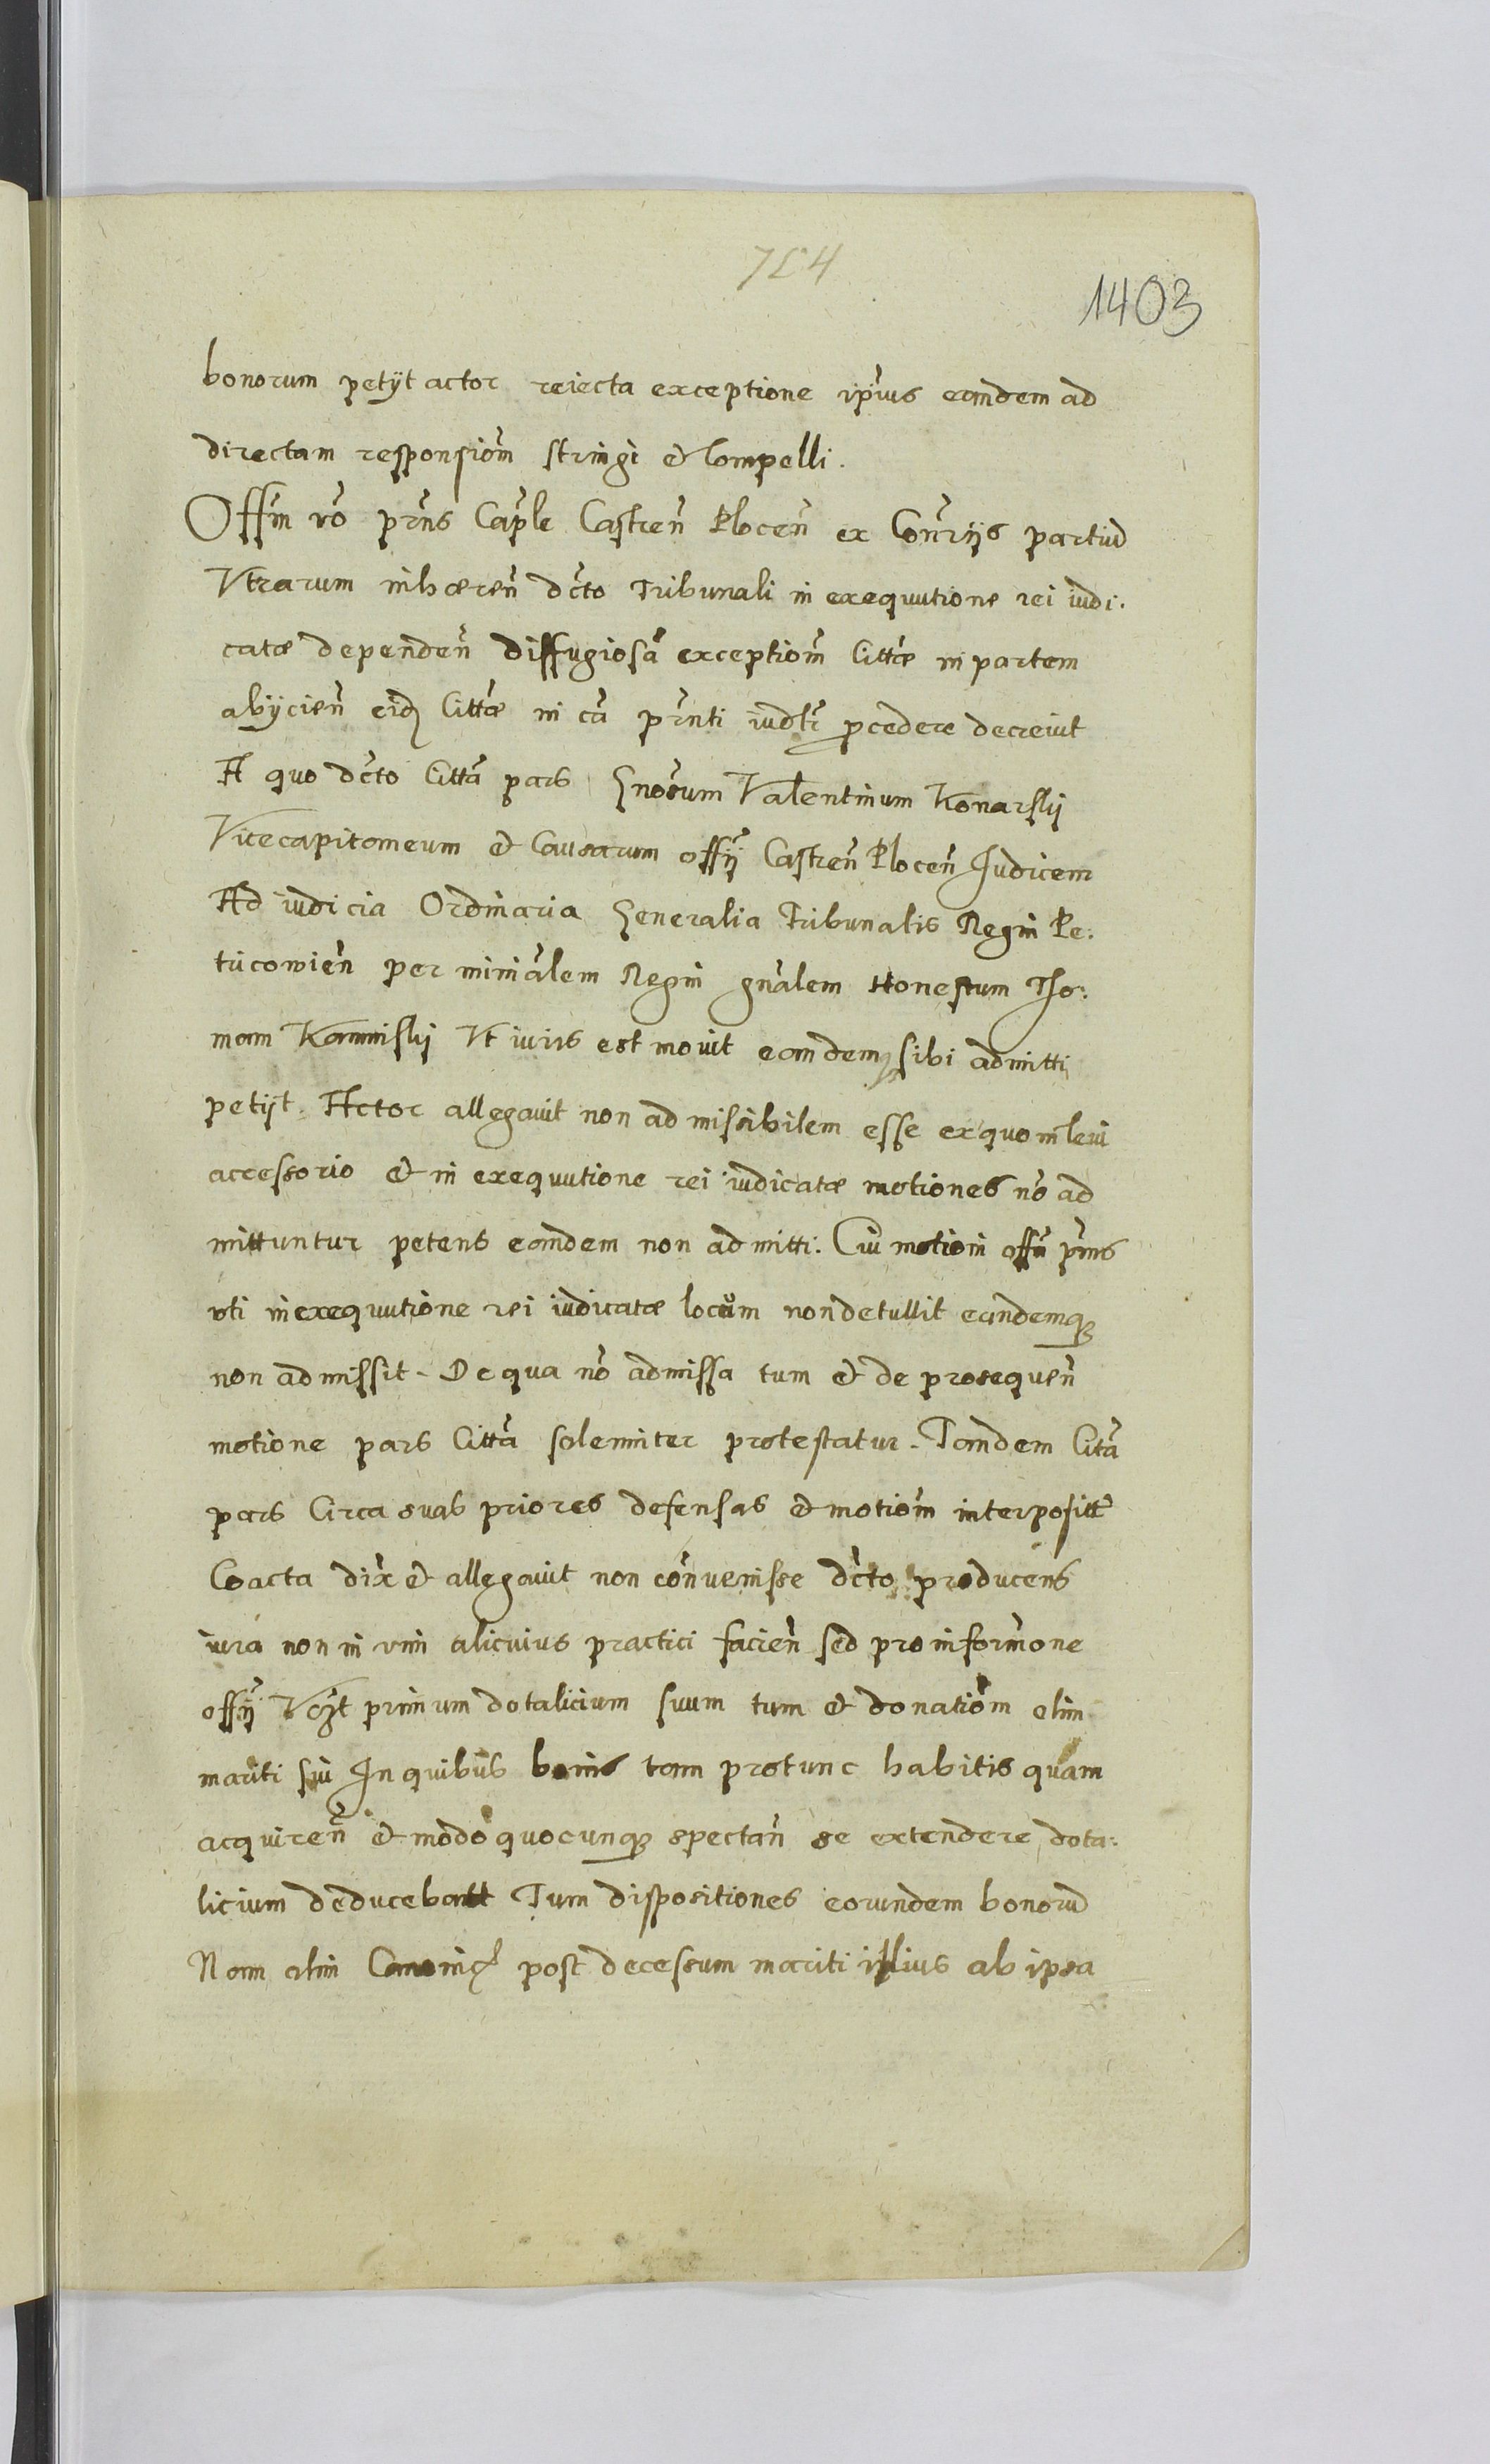 754
1403
bonorum petyt actor reiecta exceptione ipius eandem ad
directam responsiom stringi et compelli.
Offm vo prns Caple Castren Plocen ex Conriis partiu
Vtrarum inhæren dcto Tribunali in exequutione rei iudi.
catæ dependen diffugiosa exceptiom Cittæ in partem
abijcien eid Cittæ in ca prnti iudtr pcedere decreuit
A quo dcto Citta pars Gnosum Valentinum Konarskij
Vicecapitaneum et Causarum offij Castren Plocen Judicem
Ad iudicia Ordinaria Generalia Tribunalis Regni Pe:
tricouien per minialem Regni gnalem Honestum Tho:
mam Kaminskij Vt iuris est mouit eandemq sibi admitti
petijt. Actor allegauit non admissibilem esse ex quo in leui
accessorio et in exequutione rei iudicatæ motiones no ad
mittuntur petens eandem non admitti. Cui motioni offm prns
vti in exequutione rei iudicatæ locum non detullit eandemq
non admissit. De qua no admissa tum et de prosequen
motione pars Citta solenniter protestatur. Tandem Cita
pars Circa suas priores defensas et motiom interpositt
Coacta dix et allegauit non conuenisse dcto producens
iura non in vim alicuius practici facien sed pro informone
offij primum dotalicium suum tum et donatiom olim
mariti sui In quibus bonis tam protunc habitis quam
acquiren et modo quocunq spectan se extendere dota:
licium deducebatt Tum dispositiones eorundem bonoru
Nam olim post decessum mariti illius ab ipsa